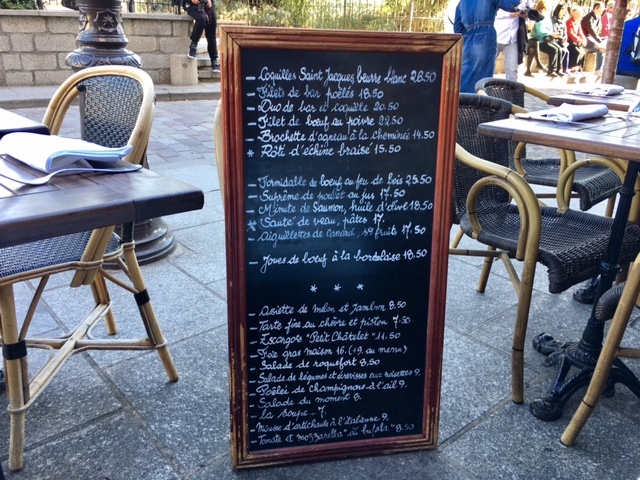 - Coquilles Saint Jacques beurre blanc 28.50
- Filets de bar poêlés 18.50
- Duo de bar et coquille 20.50
- Filet de bœuf au poivre 22.50
- Brochette d'agneau à la cheminée 14.50
* Rôti d'échine braisé 15.50
- Formidable de bœuf au feu de bois 25.50
- Suprême de poulet au jus 17.50
- Minute de Saumon, huile d'olive 18.50
* Sauté de veau, pâtes 17.
- Aiguillettes de canard, fruits 17.50
- Joues de bœuf à la bordelaise 18.50
* * *
- Assiette de melon et Jambon 8.50
- Tarte fine au chèvre et pistou 7.50
- Escargots "Petit Châtelet" 11.50
- Foie gras maison 16. (19. au menu)
- Salade de roquefort 8.50
- Salade de légumes et écrevisses aux noisettes 9.
- Poêlée de champignons à l'ail 9.
- Salade du moment 8.
- La soupe.. 7.
- Mousse d'artichauts à l'italienne 9.
- Tomate et mozzarella "di bufala" 8.50